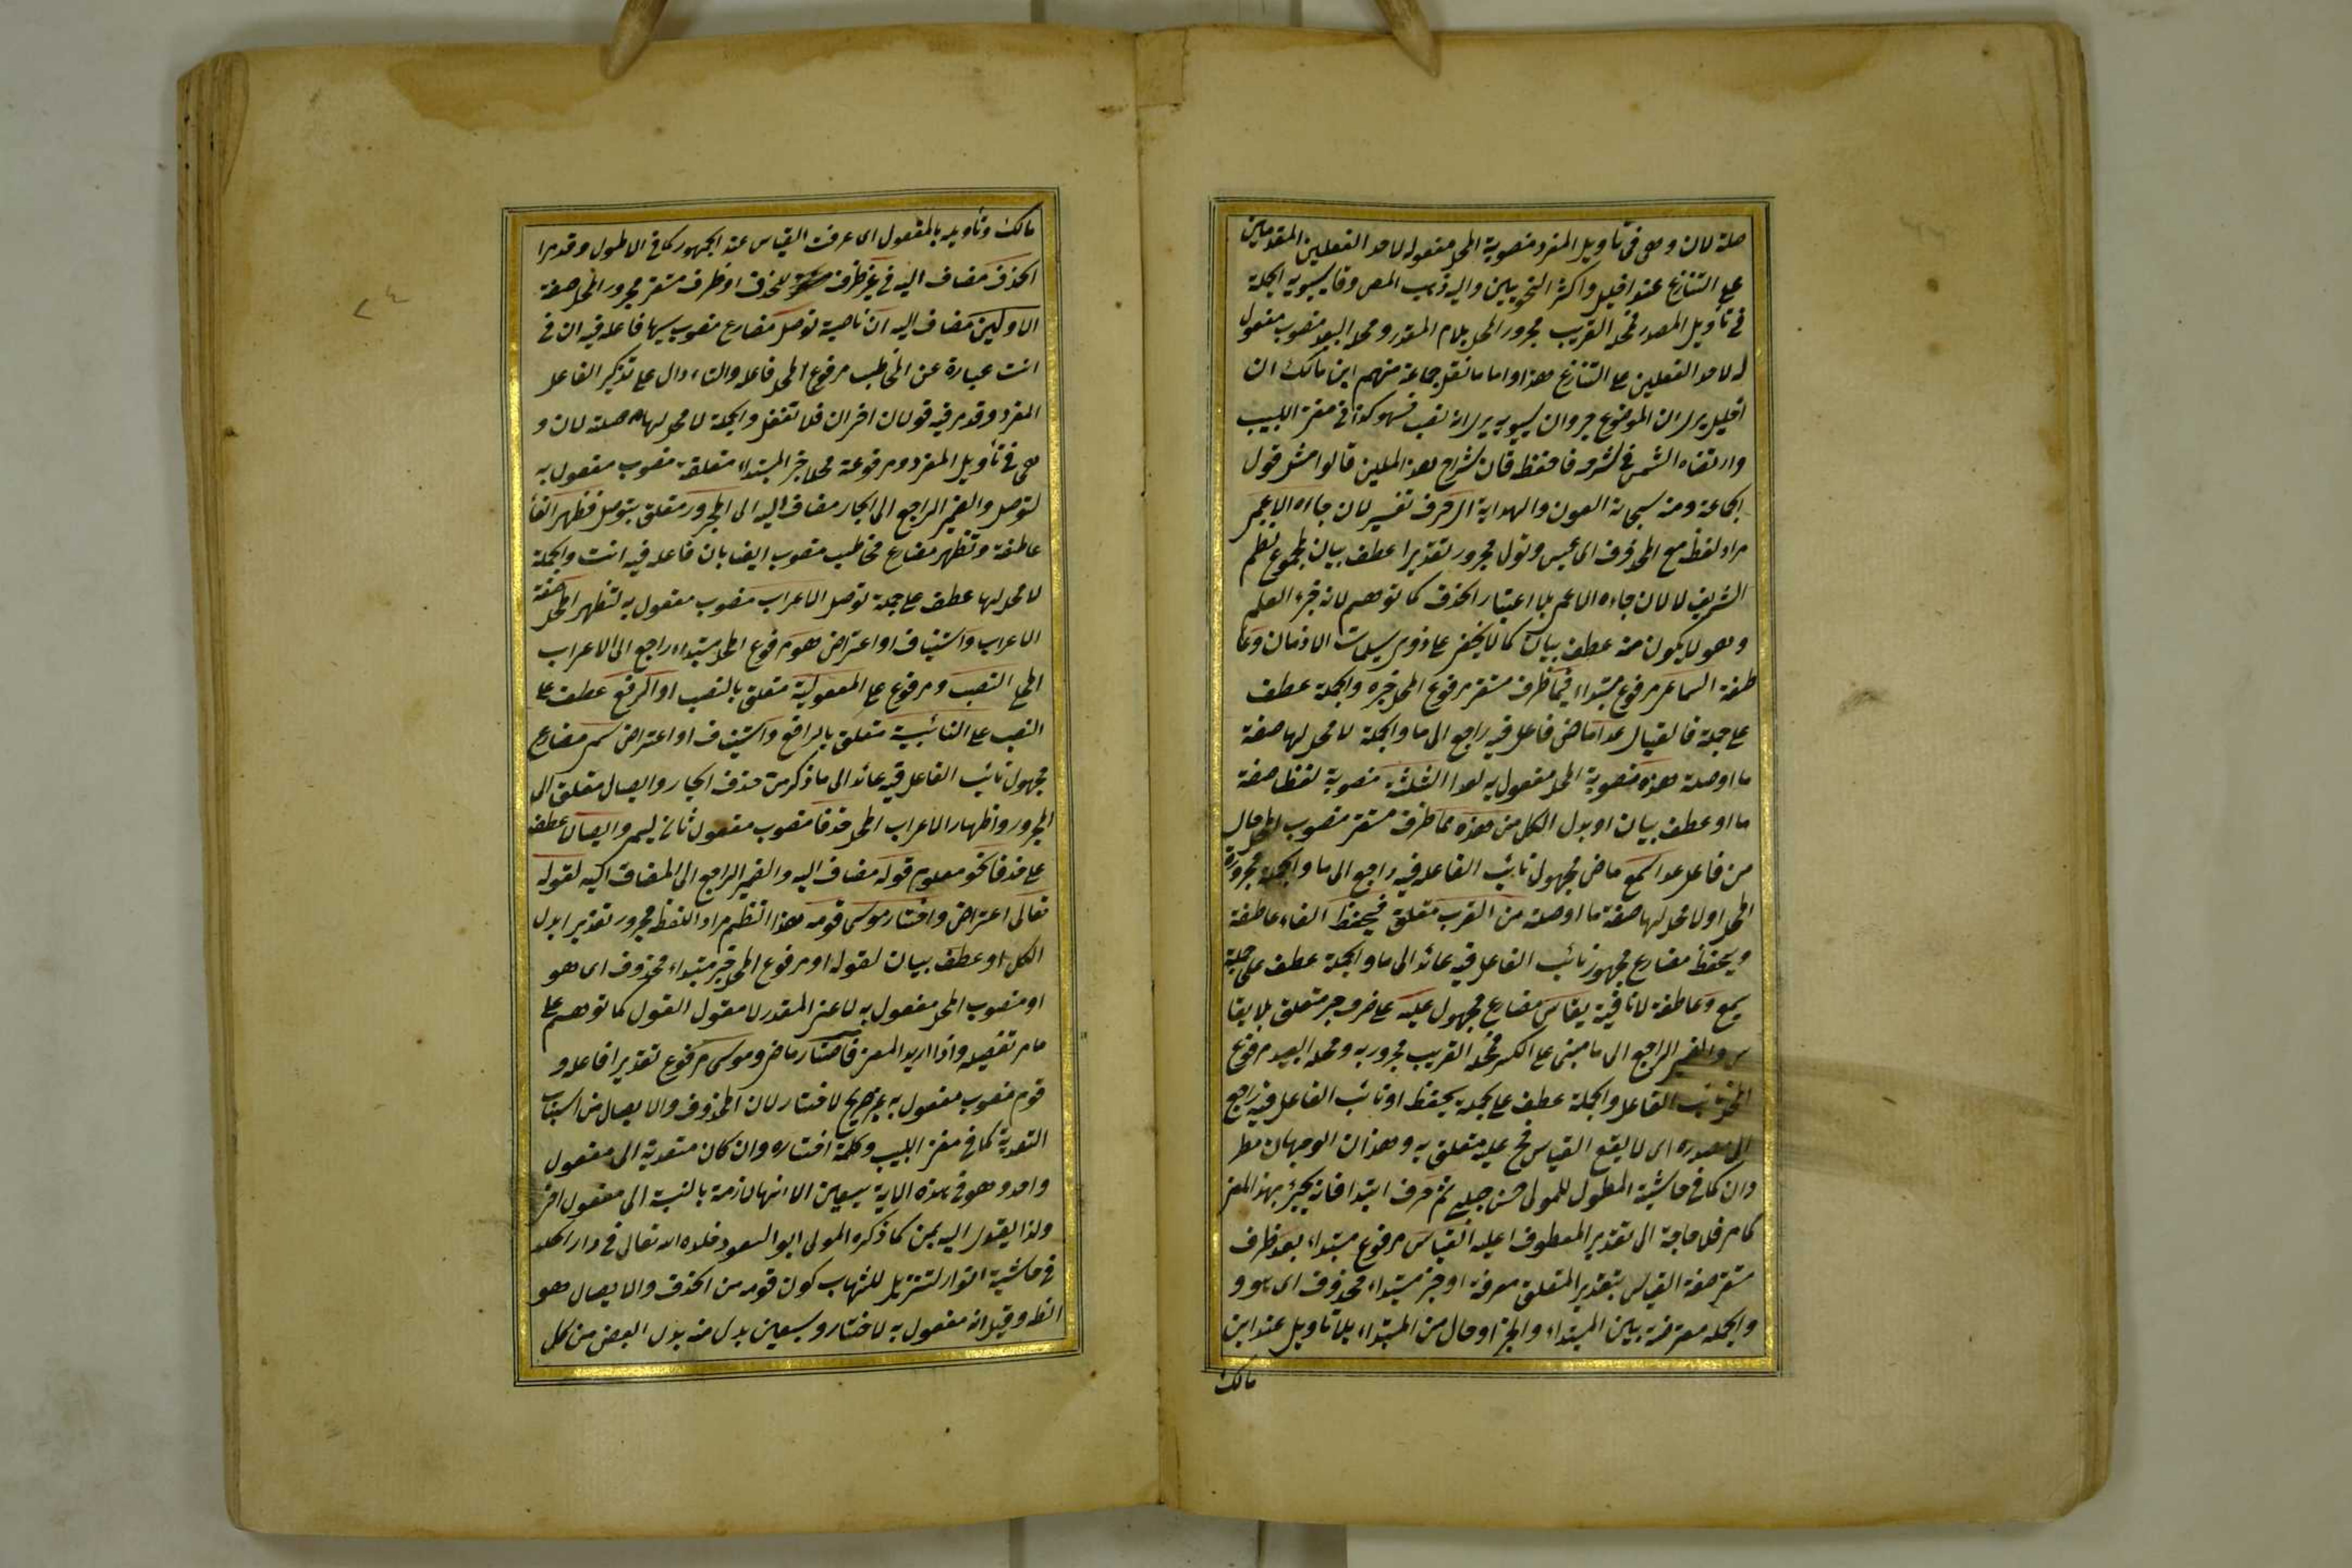 صلة لان وهى فى تأويل المفرد منصوبة المحل مفعوله لاحد الفعلين المقدمين
على التنازع عند الخليل واكثر النحويين واليه ذهب المص وقا سيبويه الجملة
فى تأويل المصدر فمحله القريب مجرور المحل بلام المقدر ومحله البعيد منصوب مفعول
له لاحد الفعلين على التنازع هذا واما ما نقل جماعة منهم ابن مالك ان
الخليل يرى ان الموضع جر وان سيبويه يرى انه نصب فسهو كذا فى مغنى اللبيب
وارتضاه الشمنى فى شرحه فاحفظ فان شراح هذ المللين قالوا مثل قول
الجماعة ومنه سبحانه العون والهداية اى حرف تفسير لان جاءه الاعمى
مراد لفظه مع المحذوف اى عبس وتولى مجرور تقديرا عطف بيان لمجموع نظم
الشريف لا لان جاءه الاعمى بلا اعتبار الحذف كما توهم لانه جزء العلم
وهو لا يكون منه عطف بيان كما لا يخفى على ذوى سيلات الاذهان وعا
طفة السماعى مرفوع مبتداء فيما ظرف مستقر مرفوع المحل خبره والجملة عطف
على جملة فالقياسى عدا ماض فاعله فيه راجع الى ما والجملة لا محل لها صفة
ما او صلة هذه منصوبة المحل مفعول به لعدا الثلثة منصوبة لفظا صفة
ما او عطف بيان او بدل الكل من هذه مما ظرف مستقر منصوب المحل حال
من فاعل عدا سمع ماض مجهول نائب الفاعل فيه راجع الى ما والجملة مجرورة
المحل او لا محل لها صفة ما او صلة من العرب متعلق فيحفظ الفاء عاطفة
ويحفظ مضارع مجهول نائب الفاعل فيه عائد الى ما والجملة عطف على جملة
سمع وعاطفة لا نافية يقاس مضارع مجهول عليه على حرف جر متعلق بلا يقا
س والضمير الراجع الى ما مبنى على الكسر فمحله القريب مجرور به ومحله البعيد مرفوع
المحل نائب الفاعل والجملة عطف على جملة يحفظ او نائب الفاعل فيه راجع
الى مصدره اى لا يقع القياس فح عليه متعلق به وهذان الوجهان مطر
دان كما فى حاشية المطول للمولى حسن جلبى ثم حرف ابتدا فانه يجئ بهذا المعنى
كما مر فلا حاجة الى تقدير المعطوف عليه القياسى مرفوع مبتداء بعد ظرف
مستقر صفة القياس بتقدير المتعلق معرفة او خبر مبتداء محذوف اى هو و
والجملة معترضة بين المبتداء والخبر او حال من المبتداء بلا تأويل عند ابن
مالك
مالك وتأويله بالمفعول اى عرفت القياس عند الجمهور كما فى الاطول وقد مرا
الحذف مضاف اليه فى غير ظرف للحذف او ظرف مستقر مجرور المحل صفة
الاولين مضاف اليه ان ناصبة توصل مضارع منصوب بها فاعله فيه ان فى
انت عبارة عن المخاطب مرفوع المحل فاعله والتاء دال على تذكير الفاعل
المفرد وقد مر فيه قولان اخران فلا تغفل والجملة لا محل لها صلة لان و
هى فى تأويل المفرد ومرفوعة محلا خبر المبتداء متعلقه منصوب مفعول به
لتوصل والضمير الراجع الى الجار مضاف اليه الى المجرور متعلق بتوصل فتظهر الفاء
عاطفة وتظهر مضارع مخاطب منصوب ايضا بان فاعله فيه انت والجملة
لا محل لها عطف على جملة توصل الاعراب منصوب مفعول به لتظهر المحلى صفة
الاعراب واستيناف او اعتراض هو مرفوع المحل مبتداء راجع الى الاعراب
المحلى النصب ومرفوع على المفعولية متعلق بالنصب او الرفع عطف على
النصب على النائبية متعلق بالرافع واستيناف او اعتراض سمى مضارع
مجهول نائب الفاعل فيه عائد الى ما ذكر من حذف الجار وايصال متعلق الى
المجرور واظهار الاعراب المحلى حذفا منصوب مفعول ثان ليسمى وايصالا عطف
على حذفا نحو معلوم قوله مضاف اليه والضمير الراجع الى المضاف اليه لقوله
تعالى اعتراض واختار موسى قومه هذا النظم مراد اللفظ مجرور تقديرا بدل
الكل او عطف بيان لقوله او مرفوع المحل خبر مبتداء محذوف اى هو
او منصوب المحل مفعول به لاعنى المقدر لا مقول القول كما توهم على
ما مر تفصيله واذا اريد المعنى فاختار ماض وموسى مرفوع تقديرا فاعله و
قوم منصوب مفعول به غير صريح لاختار لان المحذوف والايصال من اسباب
التعدية كما فى مغنى اللبيب وكلمة اختاره وان كان متعدية الى مفعول
واحد وهو فى هذه الاية سبعين الا انها لازمة بالنسبة الى مفعول اخر
ولذا يقول اليه بمن كما ذكره المولى ابو السعود خلده الله تعالى فى دار الخلد
فى حاشية انوار لتنزيل للشهاب كون قومه من الحذف والايصال هو
الظ وقيل انه مفعول به لاختار وسبعين بدل منه بدل البعض من كل